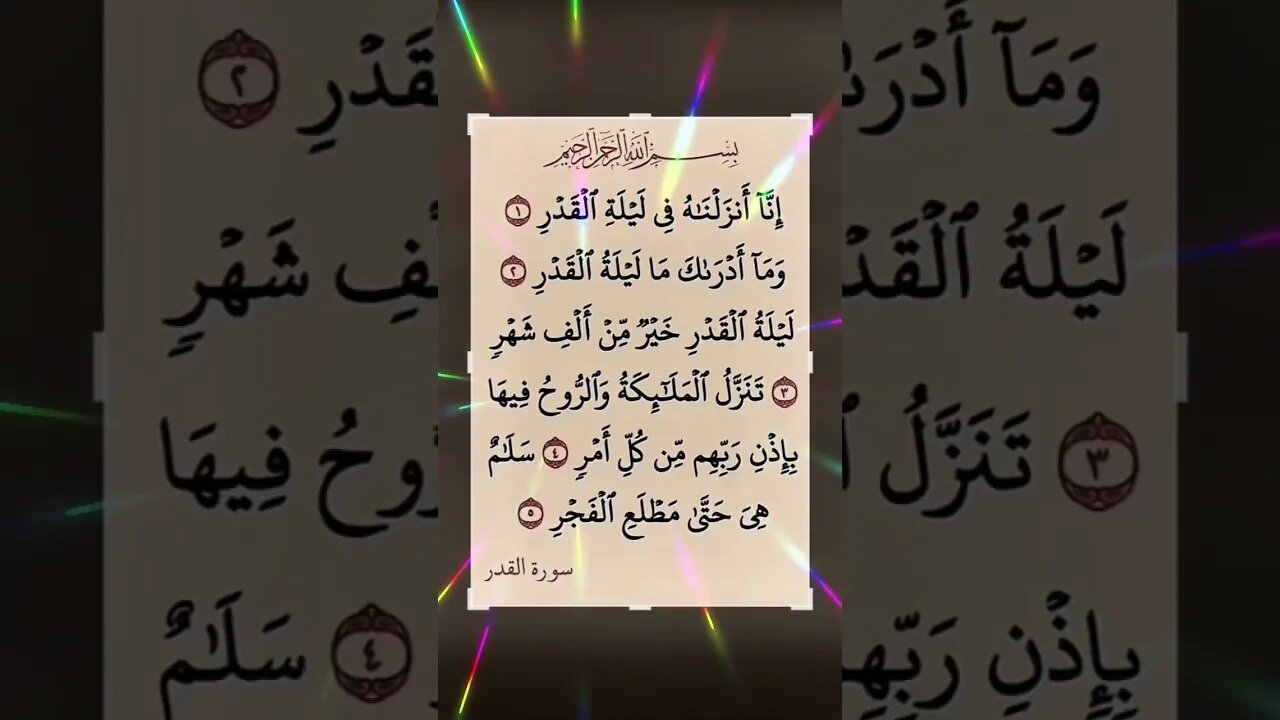 بِسْمِ ٱللَّهِ ٱلرَّحْمَٰنِ ٱلرَّحِيمِ
إِنَّآ أَنزَلْنَٰهُ فِى لَيْلَةِ ٱلْقَدْرِ ١
وَمَآ أَدْرَىٰكَ مَا لَيْلَةُ ٱلْقَدْرِ ٢
لَيْلَةُ ٱلْقَدْرِ خَيْرٌ مِّنْ أَلْفِ شَهْرٍ
٣ تَنَزَّلُ ٱلْمَلَٰٓئِكَةُ وَٱلرُّوحُ فِيهَا
بِإِذْنِ رَبِّهِم مِّن كُلِّ أَمْرٍ ٤ سَلَٰمٌ
هِىَ حَتَّىٰ مَطْلَعِ ٱلْفَجْرِ ٥
سورة القدر